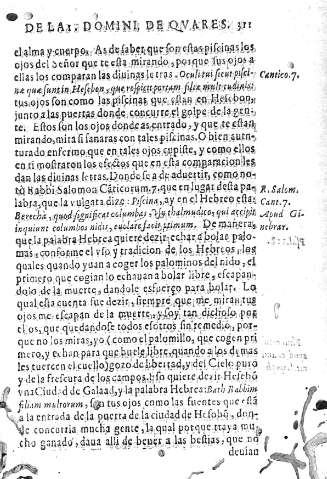 DE LA 1. DOMINI. DE QVARES. 311
el alma y cuerpo. As de saber que son estas piscinas los
ojos del Señor que te esta mirando, porque sus ojos a
ellas los comparan las diuinas letras. Oculi tui sicut pisci-
næ quæ sunt in Hesebon, quæ respiciunt portam filiæ multitudinis
Cantico. 7.
tus ojos son como las piscinas que estan en Hesebon,
junto a las puertas donde concurre el golpe de la gen-
te. Estos son los ojos donde as entrado, y que te estan
mirando, mira si sanaras con tales piscinas. O bien auen-
turado enfermo que en tales ojos cupiste, y como ellos
en ti mostraron los efectos que en esta comparacion les
dan las diuinas letras. Donde se a de aduertir, como no-
tò Rabbi Salomon Cãticorum. 7. que en lugar desta pa-
R. Salom.
labra, que la vulgata dize: Piscina, ay en el Hebreo esta:
Cant. 7.
Berechà, quod significat columbas,
qui accipit
Apud Ge-
inquiunt columbas nidis, euolare facit primum. De manera
nebrar.
que la palabra Hebrea quiere dezir echar a bolar palo-
mas, conforme el vso y tradicion de los Hebreos, los
quales quando yuan a coger los palominos del nido, el
primero que cogian lo echauan a bolar libre, escapan-
dolo de la muerte, dandole esfuerço para bolar. Lo
qual esta cuenta fue dezir, siempre que me miran tus
ojos me escapan de la muerte, y soy tan dichoso por
el os, que quedandose todos esotros sin remedio, por-
que no los miras, yo (como el palomillo, que cogen pri
mero, y echan para que buele libre, quando a los demas
les tuercen el cuello) gozo de libertad, y del Cielo puro
y de la frescura de los campos. Eso quiere dezir Hesebõ
vna Ciudad de Galaad, y la palabra Hebrea: Bath Rabbim
filiam multorum, son tus ojos como las fuentes que estã
a la entrada de la puerta de la ciudad de Hesebõ, don-
de concurria mucha gente, la qual porque traya mu-
cho ganado, daua alli de beuer a las bestias, que no
deuian